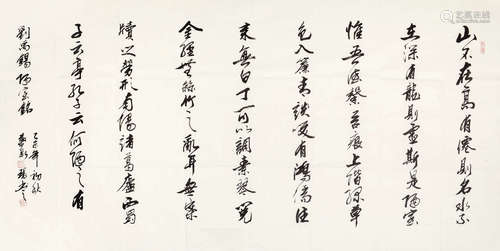 山不在高有僊則名水不
在深有龍則靈斯是陋室
惟吾德馨苔痕上階綠草
色入簾青談笑有鴻儒往
來無白丁可以調素琴閱
金經無絲竹之亂耳無案
牘之勞形南陽諸葛廬西蜀
子云亭孔子云何陋之有
劉禹錫陋室銘
年初秋